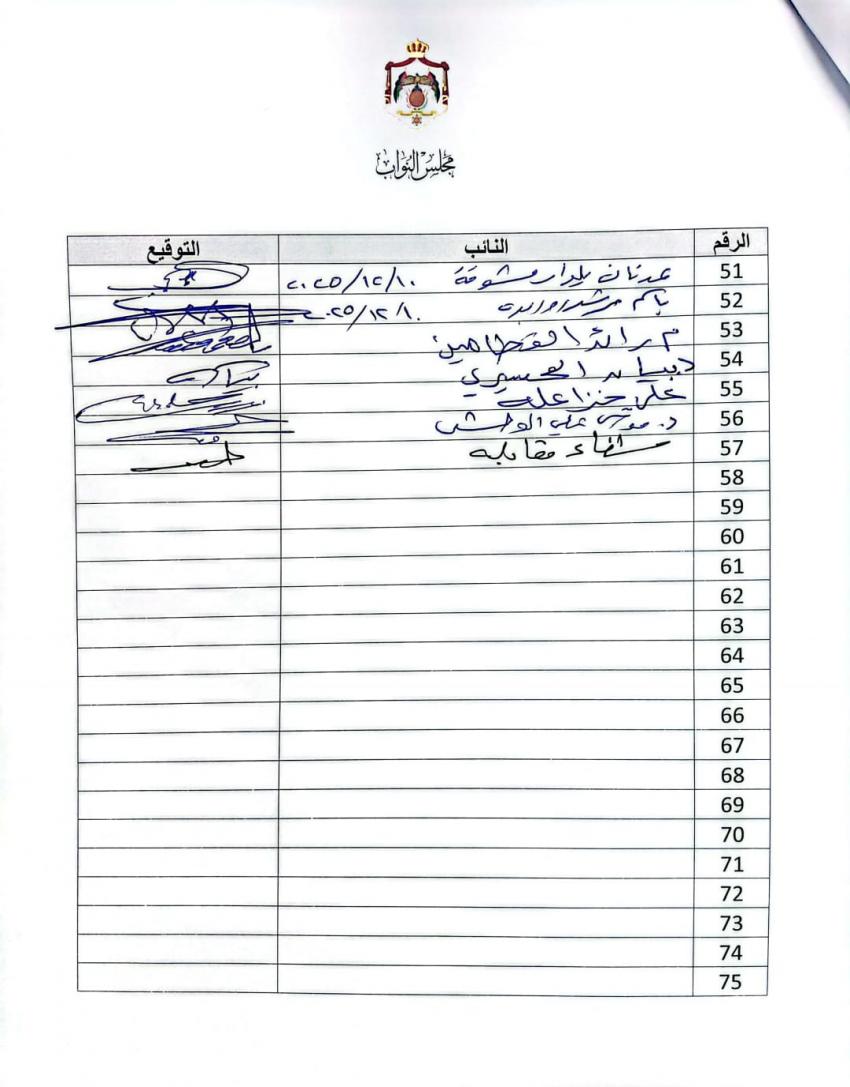 مجلس النواب
الرقم النائب التوقيع
51 عدنان يلدار مشوقة ٢٠٢٥/١٢/١٠
52 باسم ٢٠٢٥/١٢/١٠
53 م رائد القطامين
54 د. بيان المحسيري
55 علي خزاعله
56 د. موسى علي الوحش
57 شفاء مقابله
58
59
60
61
62
63
64
65
66
67
68
69
70
71
72
73
74
75